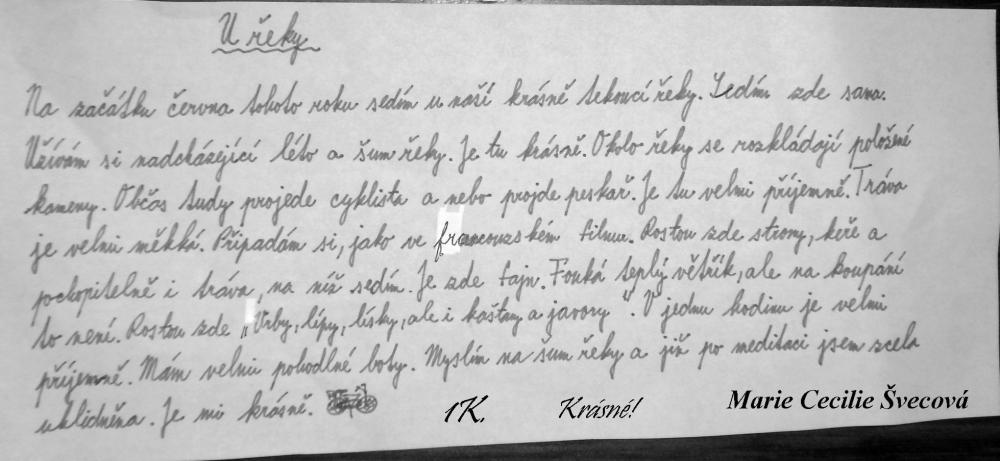 U řeky
Na začátku června tohoto roku sedím u naší krásně tekoucí řeky. Sedím zde sama.
Užívám si nadcházející léto a šum řeky. Je tu krásně. Okolo řeky se rozkládají položné
kameny. Občas tudy projede cyklista a nebo projde peskař. Je tu velmi příjemně. Tráva
je velmi měkká. Připadám si, jako ve francouzském filmu. Rostou zde stromy, keře a
pochopitelně i tráva, na níž sedím. Je zde fajn. Fouká teplý větřík, ale na koupání
to není. Rostou zde „Vrby, lípy, lísky, ale i kaštany a javory“. V jednu hodinu je velmi
příjemně. Mám velmi pohodlné boty. Myslím na šum řeky a již po meditaci jsem zcela
uklidněna. Je mi krásně.
1K. Krásné! Marie Cecilie Švecová